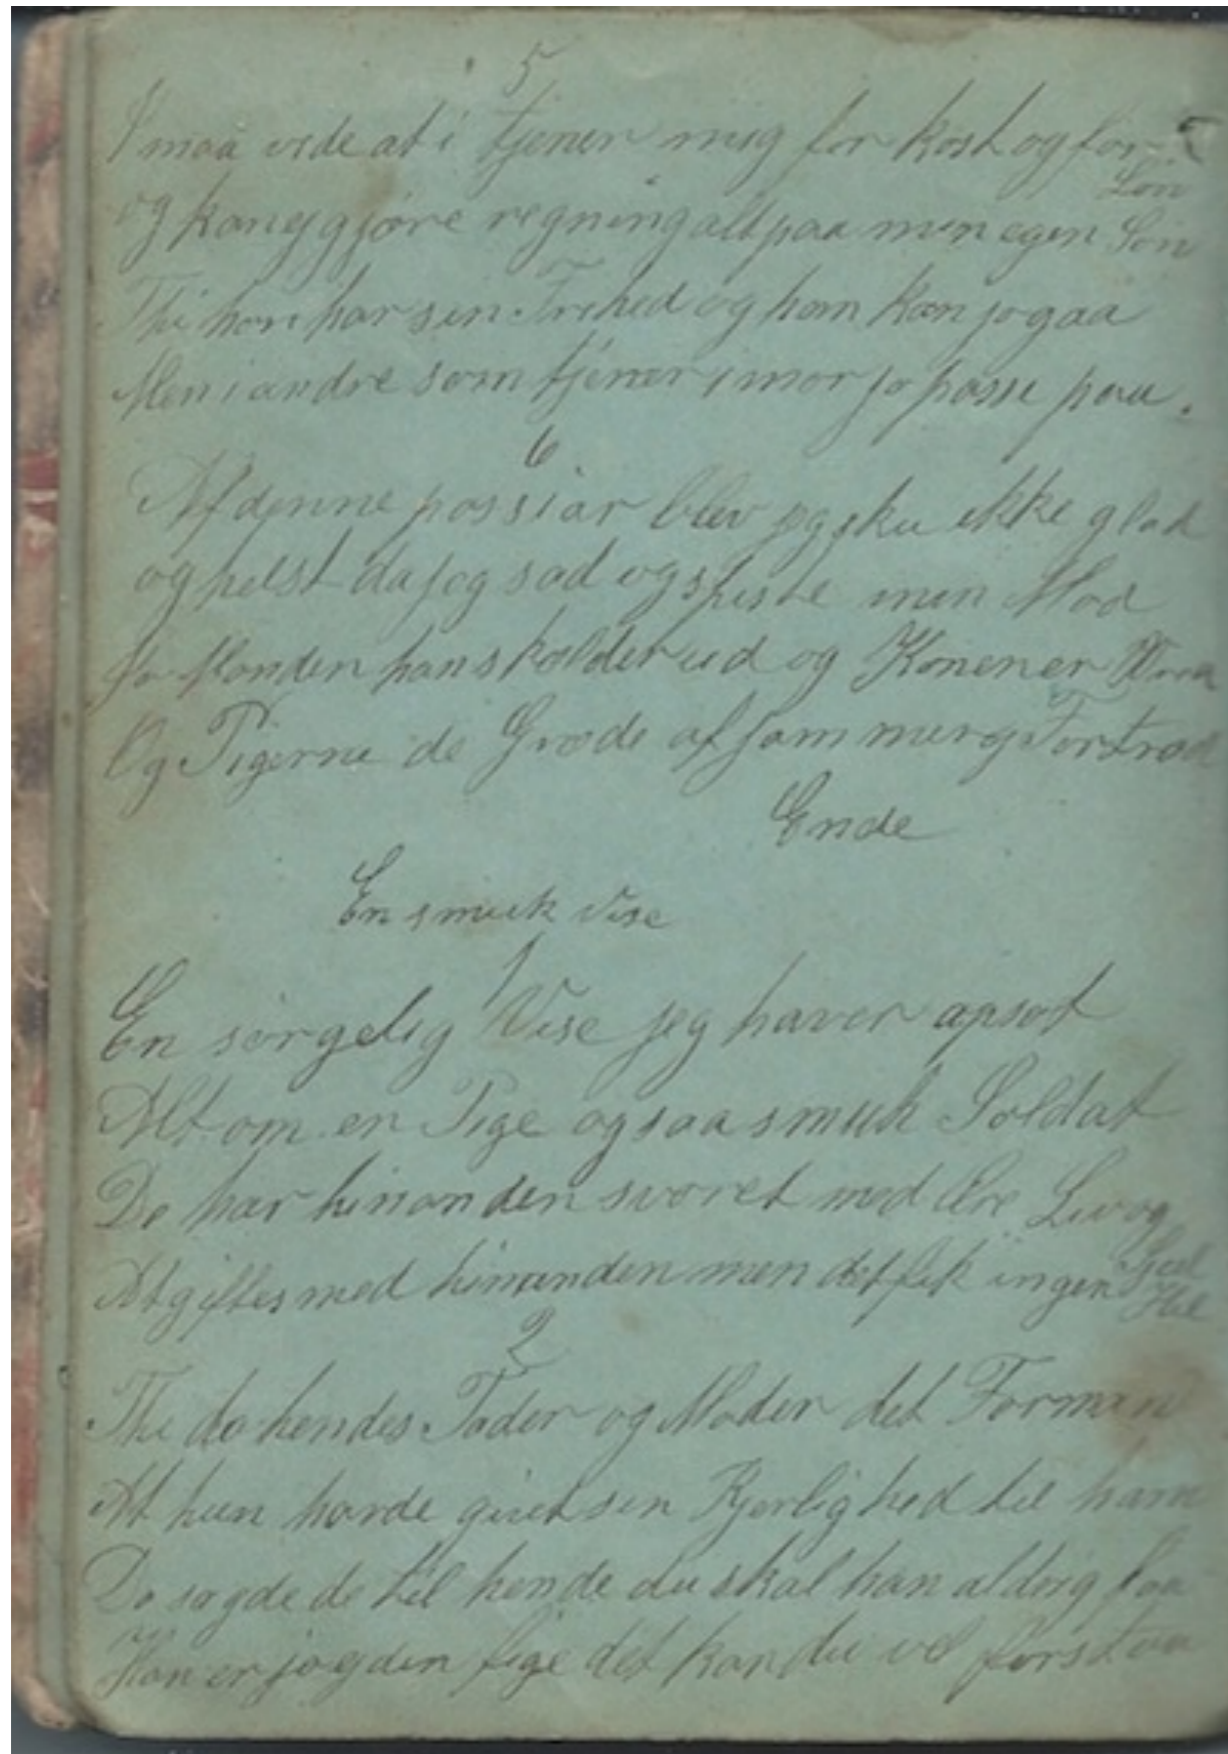 5
I maa vide at i tjener mig for kost og for
Løn
og kan ej gjøre regning alt paa min egen Søn
Thi han har sin Frihed og ham kan jo gaa
Men i andre som tjener i mor jo passe paa.
6
Af denne passiar blev jeg sku ikke glad
og helst da jeg sad og spiste min Mad
Ja Manden han skalder ud og Konen er Vred
Og Pigerne de Græde af Jammer og Fortræd
Ende
En smuk Vise
1
En sørgelig Vise jeg haver apsat
Alt om en Pige og saa smuk Soldat
De har hinanden svoret med Ære Liv og
Sjæl
At giftes med hinanden men det fik ingen
Hel
2
Thi da hendes Fader og Moder det Fornam
At hun havde givet sin Kjerlighed til ham
Da sagde de til hende du skal han aldrig faa
Han er jo den fige det kan du vel forstaa